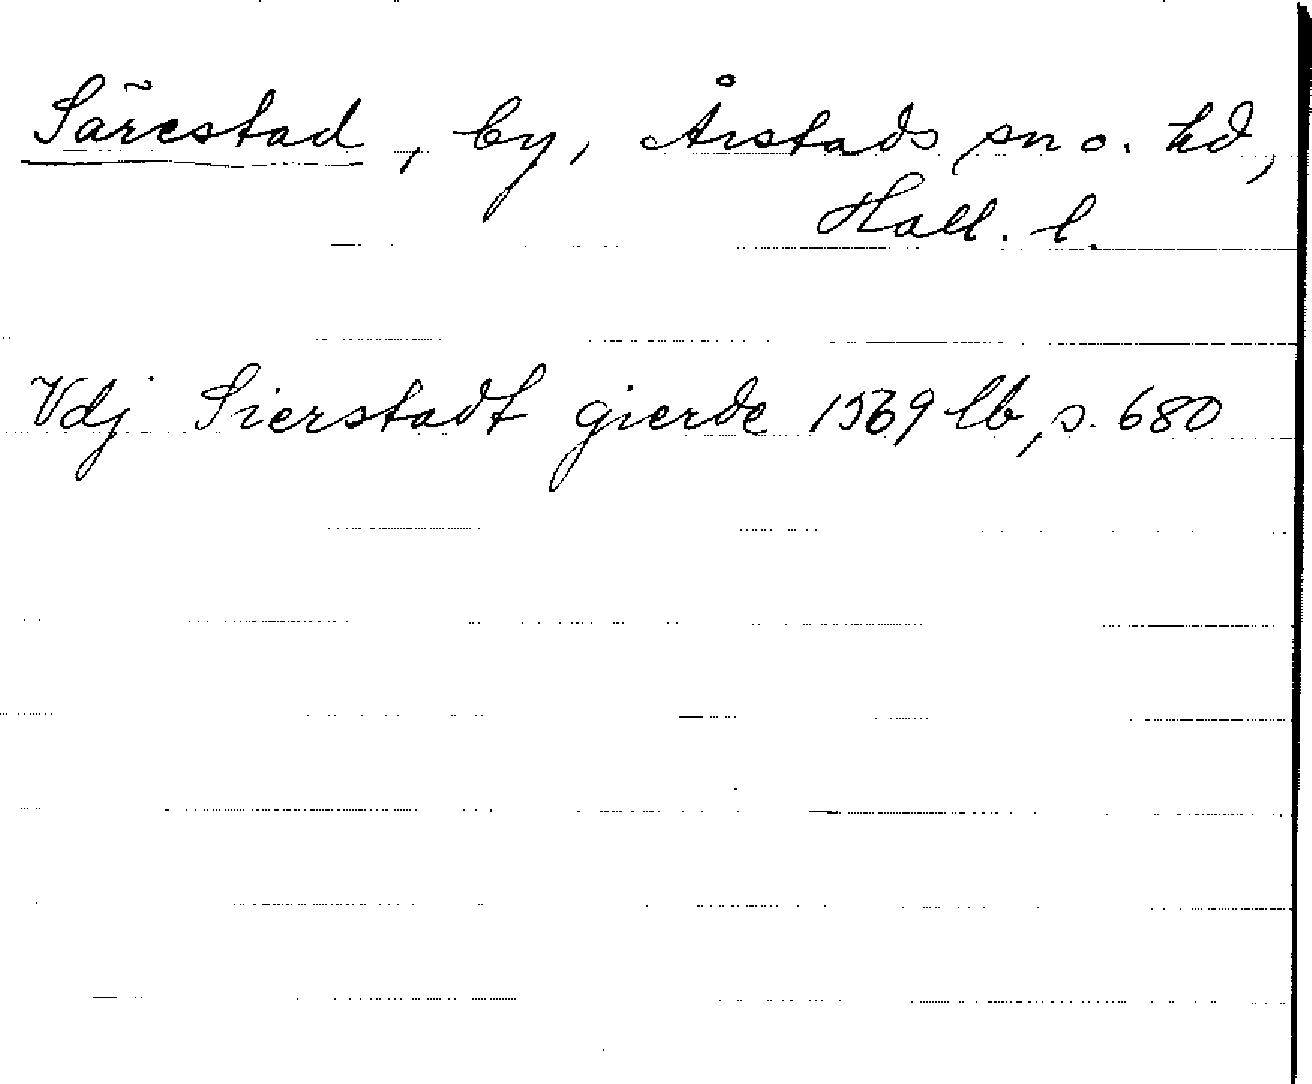 Särestad, by, Årstads sn o. hd,
Hall. l.
Vdj Sierstadt gierde 1569 lb, s. 680